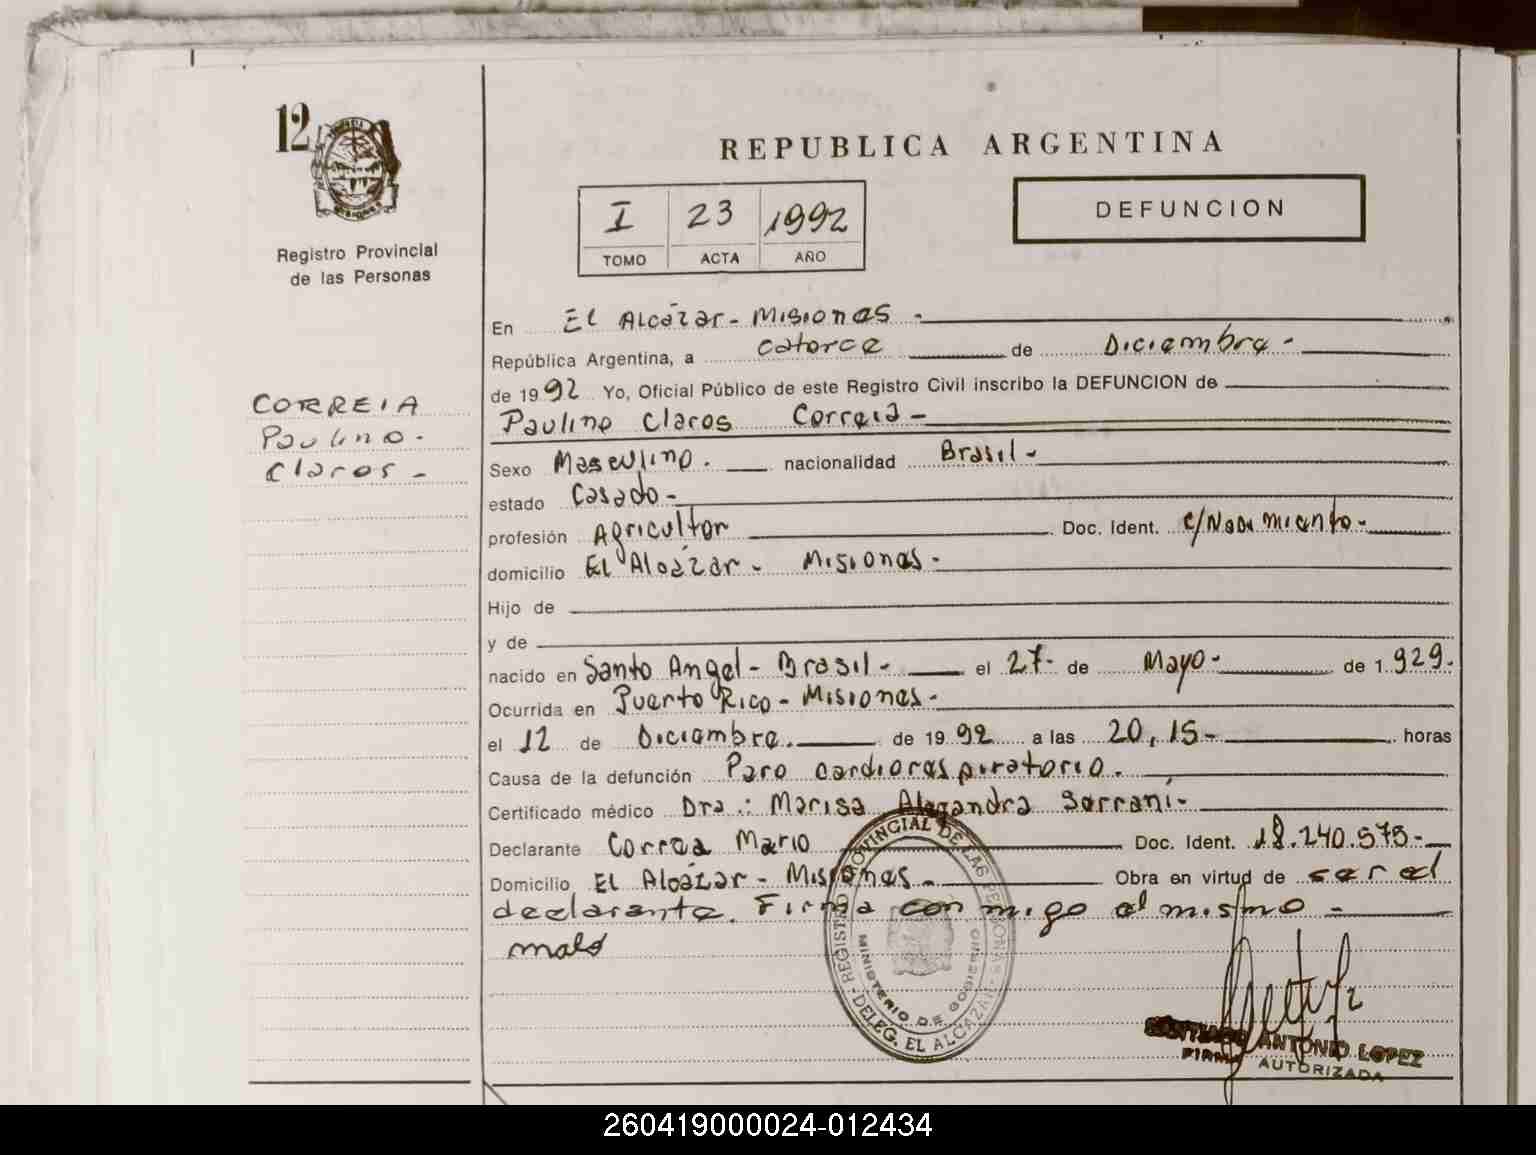 12
Registro Provincial
de las Personas
CORREIA
Paulino.
Claros -
REPUBLICA ARGENTINA
I 23 1992
TOMO ACTA AÑO
DEFUNCION
En El Alcázar - Misiones -
República Argentina, a catorce de Diciembre -
de 1992 Yo, Oficial Público de este Registro Civil inscribo la DEFUNCION de
Paulino Claros Correia -
Sexo Masculino. nacionalidad Brasil -
estado Casado -
profesión Agricultor Doc. Ident.
domicilio El Alcázar - Misiones -
Hijo de
y de
nacido en Santo Angel - Brasil - el 27 - de Mayo - de 1.929.
Ocurrida en Puerto Rico - Misiones -
el 12 de Diciembre. de 1992 a las 20,15 - horas
Causa de la defunción Paro cardiorespiratorio.
Certificado médico Dra.: Marisa Alejandra Serrani -
Declarante Correa Mario Doc. Ident. 18.240.575 -
Domicilio El Alcázar - Misiones - Obra en virtud de ser el
declarante. Firma con migo el mismo -
REGISTRO PROVINCIAL DE LAS PERSONAS
MINISTERIO DE GOBIERNO
DELEG. EL ALCAZAR
SANTIAGO ANTONIO LOPEZ
FIRMA AUTORIZADA
260419000024-012434